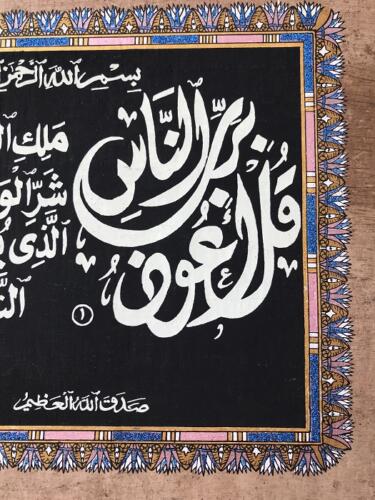 بسم الله الرحمن
قل أعوذ برب الناس ١
ملك
شر
الذي
صدق الله العظيم